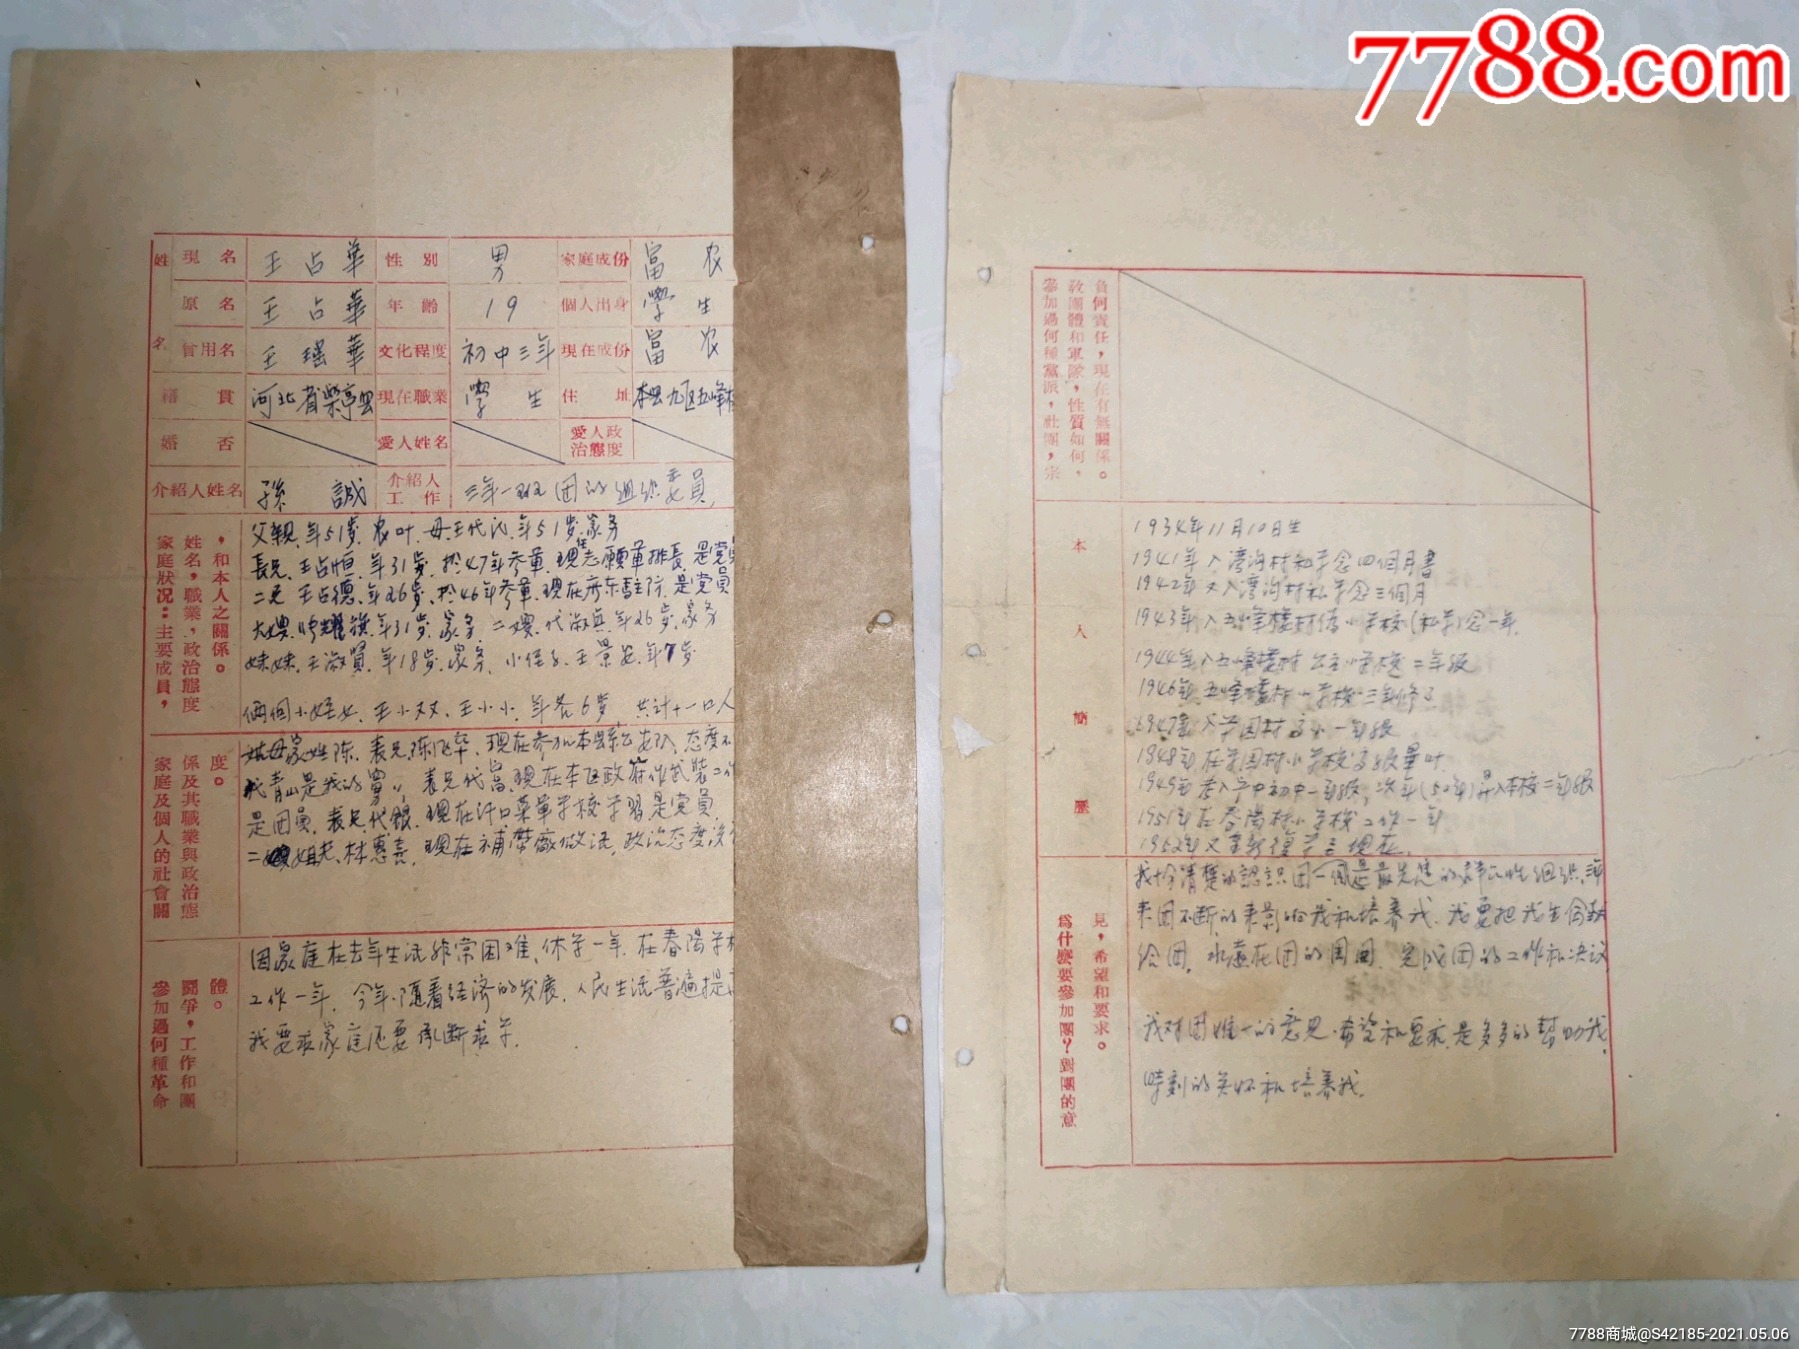 7788.com
姓名
現名 王占華 性別 男 家庭成份 富农
原名 王占華 年齡 19 個人出身 學生
曾用名 王瑶華 文化程度 初中三年 現在成份 富农
籍貫 河北省樂亭县 現在職業 學生 住址 本县九区五峰
婚否 愛人姓名 愛人政治態度
介紹人姓名 孫誠 介紹人工作 三年一班团的组织委員
家庭狀况：主要成員，
姓名，職業，政治態度
，和本人之關係。
父親，年51岁，农叶，母王代氏，年51岁，家务
長兄，王占恒，年31岁，於47年参軍，現在志願軍排長，是党
二兄 王占德，年26岁，於46年参軍，現在 是党員
年31岁，家务，二嫂，代淑 年26岁，家务
妹妹，王淑賢，年18岁，家务，小侄子，王景 年7岁
俩個小侄女，王小双，王小小，年 6岁 共計十一口人
家庭及個人的社會關
係及其職業與政治態
度。
母家姓陈，表兄陈 現在参加本县 公安 态度
青山是我的舅 表兄代 現在本区政府作武裝工作
是团員，表兄代銀，現在 軍学校学習是党員
林惠 現在 廠做活，政治态度
參加過何種革命
鬪爭，工作和團
體。
因家庭在去年生活非常困难，休学一年，在春陽学
工作一年，今年，随着经济的发展，人民生活普遍提
我要求家庭还要 断求学，
參加過何種黨派，社團，宗
敎團體和軍隊，性質如何，
負何責任，現在有無關係。
本人簡歷
1934年11月10日生
1941年入湾沟村私学念四個月書
1942年又入湾沟村私学念三個月
1943年入五峰樓村 小学校(私学)念一年，
1944年入五峰樓村 小学校二年級
1946年 五峰樓村小学校三年
1947年入 村高小一年級
1948年在 村小学校高級畢叶
1949年考入 中初中一年級，次年(50年)昇入本校二年級
1951年在春陽村小学校工作一年
1952年又 復学至現在，
爲什麽要參加團？對團的意
見，希望和要求。
我十分清楚的認識团一個是最先進的群众性组织，
来团不断的来影响我和培养我，我要把我生命
给团，永远在团的周圍，完成团的工作和决议
我对团唯一的意见，希望和要求，是多多的幫助我，
時刻的关怀和培养我，
7788商城@S42185-2021.05.06